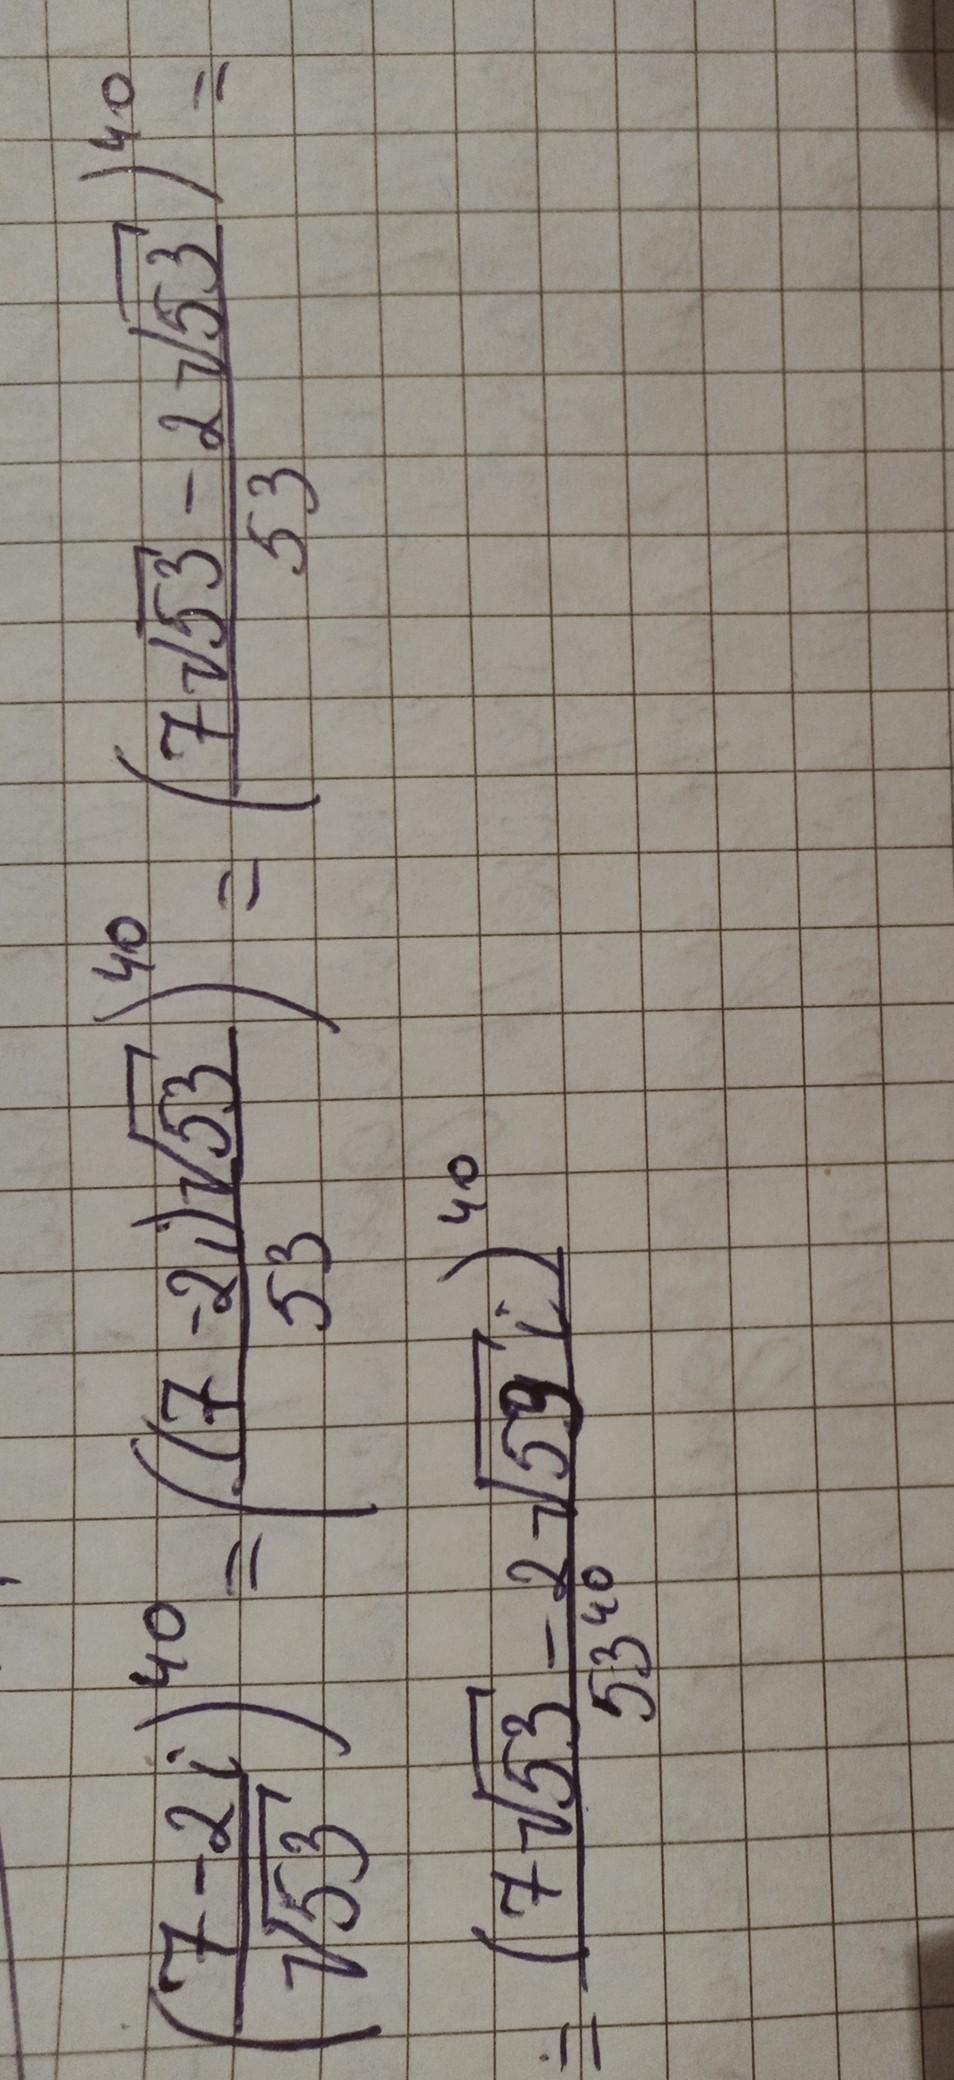 (7-2i/√53)^40 = ((7-2i)√53/53)^40 = (7√53-2√53/53)^40 =
= (7√53-2√53 i)^40/53^40